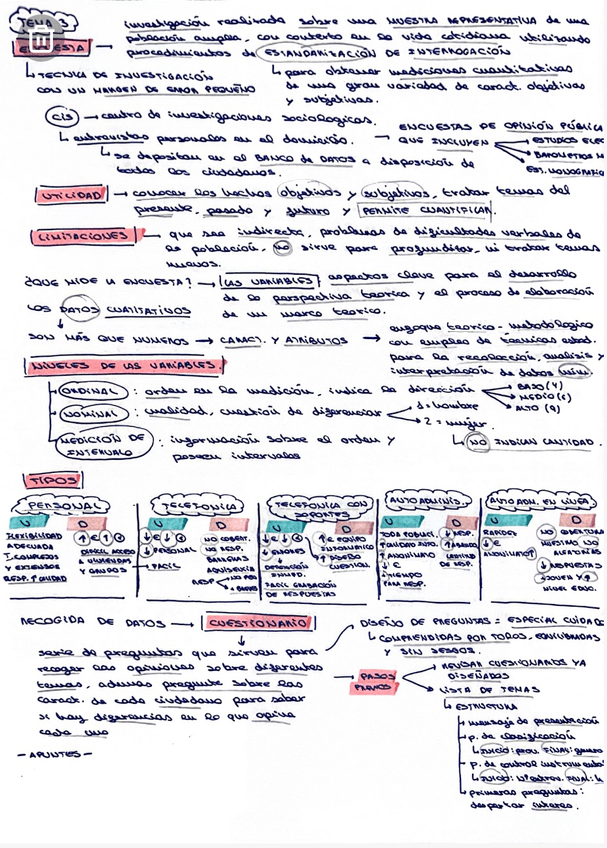 TEMA 3
investigación realizada sobre una MUESTRA REPRESENTATIVA de una
población amplia, con contexto en la vida cotidiana utilizando
procedimientos de ESTANDARIZACIÓN DE INTERROGACIÓN
↳ TECNICA DE INVESTIGACIÓN
CON UN MARGEN DE ERROR PEQUEÑO
↳ para obtener mediciones cuantitativas
de una gran variedad de caract. objetivas
y subjetivas.
CIS → centro de investigaciones sociologicas.
↳ entrevistas personales en el domicilio.
↳ se depositan en el BANCO DE DATOS a disposición de
todos los ciudadanos.
ENCUESTAS DE OPINIÓN PÚBLICA
QUE INCLUYEN
ESTUDIOS ELEC
BAROMETROS M
EST. MONOGRAFI
UTILIDAD → conocer los hechos objetivos y subjetivos, tratar temas del
presente, pasado y futuro y PERMITE CUANTIFICAR.
LIMITACIONES → que sea indirecta, problemas de dificultades verbales de
la población, no sirve para profundizar, ni tratar temas
nuevos.
¿QUE MIDE LA ENCUESTA? → LAS VARIABLES aspectos clave para el desarrollo
de la perspectiva teorica y el proceso de elaboración
de un marco teorico.
LOS DATOS CUALITATIVOS
↓
SON MÁS QUE NUMEROS → CARACT. Y ATRIBUTOS →
enfoque teorico-metodologico
con empleo de tecnicas estad.
para la recolección, analisis y
interpretación de datos núm.
NIVELES DE LAS VARIABLES.
ORDINAL: orden en la medición, indica la dirección
BAJO (4)
MEDIO (5)
ALTO (9)
NOMINAL: cualidad, cuestión de diferenciar
1 = hombre
2 = mujer.
↳ NO INDICAN CANTIDAD.
MEDICIÓN DE
INTERVALO: información sobre el orden y
poseen intervalos
TIPOS
PERSONAL
U D
FLEXIBILIDAD
ADECUADA
T. COMPLEJOS
Y EXTENSOS
RESP. ↑ CALIDAD
DIFÍCIL ACCESO
A VIVIENDAS
Y GRUPOS
TELEFONICA
U D
↓ PERSONAL
FACIL
NO COBERT.
NO RESP.
AQUIESCENCIA
TELEFONICA CON
SOPORTES
U D
↓ ERRORES
FACIL GRABACIÓN
DE RESPUESTAS
↑ EQUIPO
INFORMATICO
↑ DISEÑO
CUESTION.
AUTOADMINIS.
U D
↑ ANONIMATO
↑ TIEMPO
PARA RESP.
↓ RESP.
DE RESP.
AUTOADM. EN LINEA
U D
RAPIDEZ
ANONIMATO ↑
NO COBERTURA
MUESTRA NO
ALEATORIA
↓ RESPUESTAS
↓ JOVEN Y ↑
NIVEL EDUC.
RECOGIDA DE DATOS → CUESTIONARIO
↓
serie de preguntas que sirven para
recoger las opiniones sobre diferentes
temas, ademas pregunta sobre las
caract. de cada ciudadano para saber
si hay diferencias en lo que opina
cada uno
DISEÑO DE PREGUNTAS = ESPECIAL CUIDADO
↳ COMPRENDIDAS POR TODOS, EQUILIBRADAS
Y SIN SESGOS.
→ PASOS
PREVIOS
REVISAR CUESTIONARIOS YA
DISEÑADOS
LISTA DE TEMAS
↳ ESTRUCTURA
mensaje de presentación
p. de clasificación
p. de control instrumento
primeras preguntas:
despertar interes.
- APUNTES -